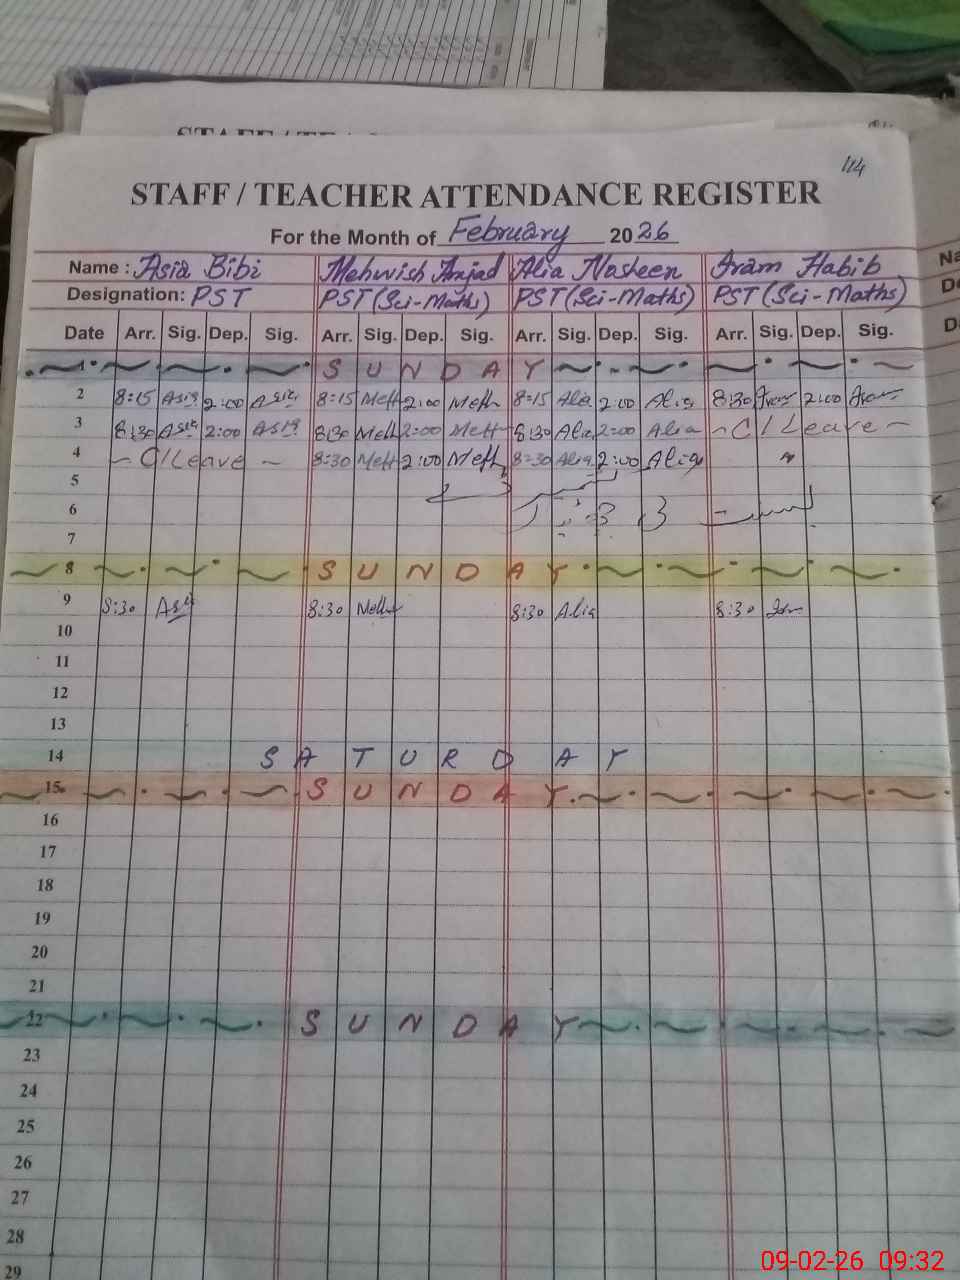 114
STAFF / TEACHER ATTENDANCE REGISTER
For the Month of February 2026
Name : Asia Bibi Mehwish Amjad Alia Nosheen Iram Habib
Designation: PST PST (Sci-Maths) PST (Sci-Maths) PST (Sci-Maths)
Date Arr. Sig. Dep. Sig. Arr. Sig. Dep. Sig. Arr. Sig. Dep. Sig. Arr. Sig. Dep. Sig.
1 SUNDAY
2 8:15 Asia 2:00 Asia 8:15 Meh 2:00 Meh 8:15 Alia 2:00 Alia 8:30 Iram 2:00 Iram
3 8:30 Asia 2:00 Asia 8:30 Meh 2:00 Meh 8:30 Alia 2:00 Alia ~ C/Leave ~
4 ~ C/Leave ~ 8:30 Meh 2:00 Meh 8:30 Alia 2:00 Alia
5
6
7
8 SUNDAY
9 8:30 Asia 8:30 Meh 8:30 Alia 8:30
10
11
12
13
14 SATURDAY
15 SUNDAY
16
17
18
19
20
21
22 SUNDAY
23
24
25
26
27
28
29
09-02-26 09:32